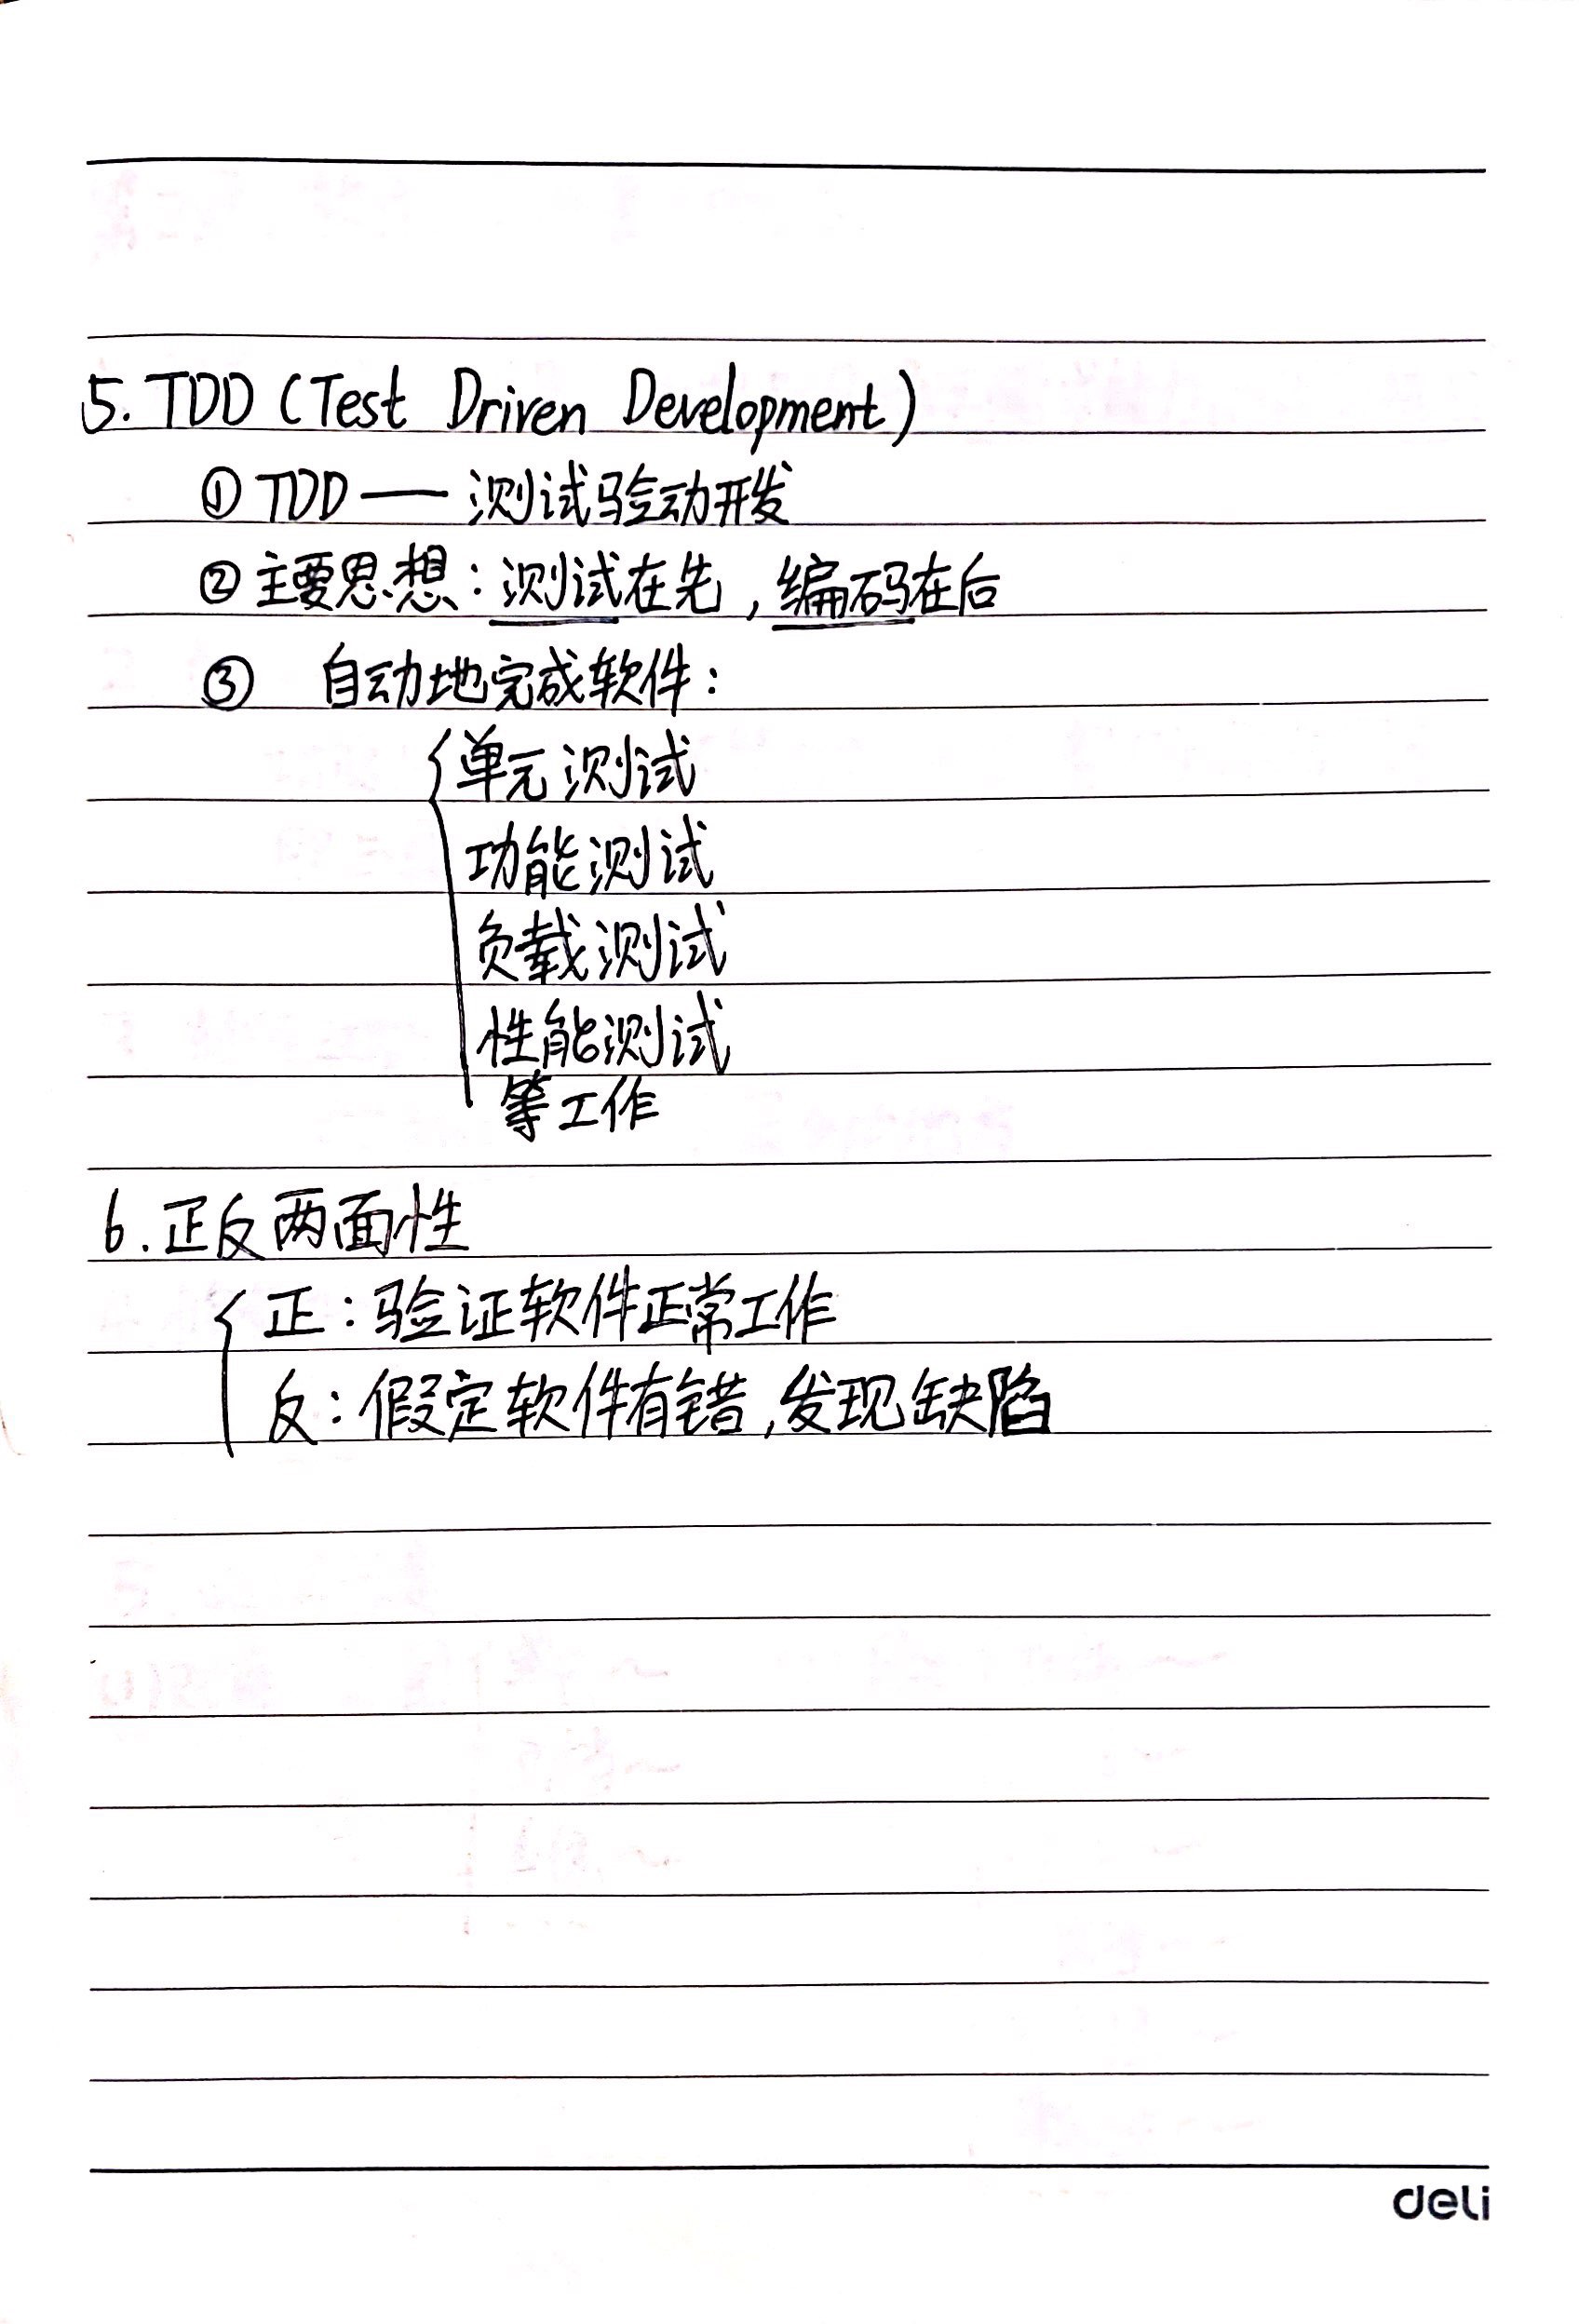 5. TDD (Test Driven Development)
① TDD —— 测试验动开发
② 主要思想：测试在先，编码在后
③ 自动地完成软件：
单元测试
功能测试
负载测试
性能测试
等工作
6. 正反两面性
正：验证软件正常工作
反：假定软件有错，发现缺陷
deli